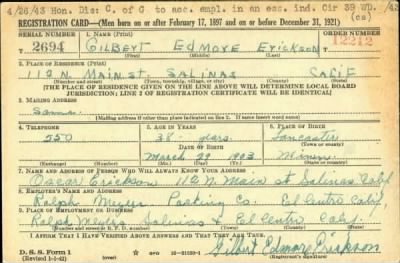 4/26/43 Hon. Dis: C. of G. to acc. empl. in an ess. ind. Cir 39 WD.
(cs)
REGISTRATION CARD—(Men born on or after February 17, 1897 and on or before December 31, 1921)
SERIAL NUMBER 1. NAME (Print) ORDER NUMBER
2694 GILBERT Edmore Erickson 12212
(First) (Middle) (Last)
2. PLACE OF RESIDENCE (Print)
112 N Main st. SALINAS CALIF
(Number and street) (Town, township, village, or city) (County) (State)
[THE PLACE OF RESIDENCE GIVEN ON THE LINE ABOVE WILL DETERMINE LOCAL BOARD
JURISDICTION; LINE 2 OF REGISTRATION CERTIFICATE WILL BE IDENTICAL]
3. MAILING ADDRESS
Same
[Mailing address if other than place indicated on line 2. If same insert word same]
4. TELEPHONE 5. AGE IN YEARS 6. PLACE OF BIRTH
250 38 Years. Lancaster
DATE OF BIRTH (Town or county)
March 29 1903 Minn.
(Exchange) (Number) (Mo.) (Day) (Yr.) (State or country)
7. NAME AND ADDRESS OF PERSON WHO WILL ALWAYS KNOW YOUR ADDRESS
Oscar Erickson 112 N. Main st Salinas Calif
8. EMPLOYER'S NAME AND ADDRESS
Ralph Packing Co. El Centro Calif
9. PLACE OF EMPLOYMENT OR BUSINESS
Ralph Salinas & El Centro Calif.
(Number and street or R. F. D. number) (Town) (County) (State)
I AFFIRM THAT I HAVE VERIFIED ABOVE ANSWERS AND THAT THEY ARE TRUE.
D. S. S. Form 1
(Revised 1-1-42) (over) Gilbert Edmore Erickson
(Registrant's signature)